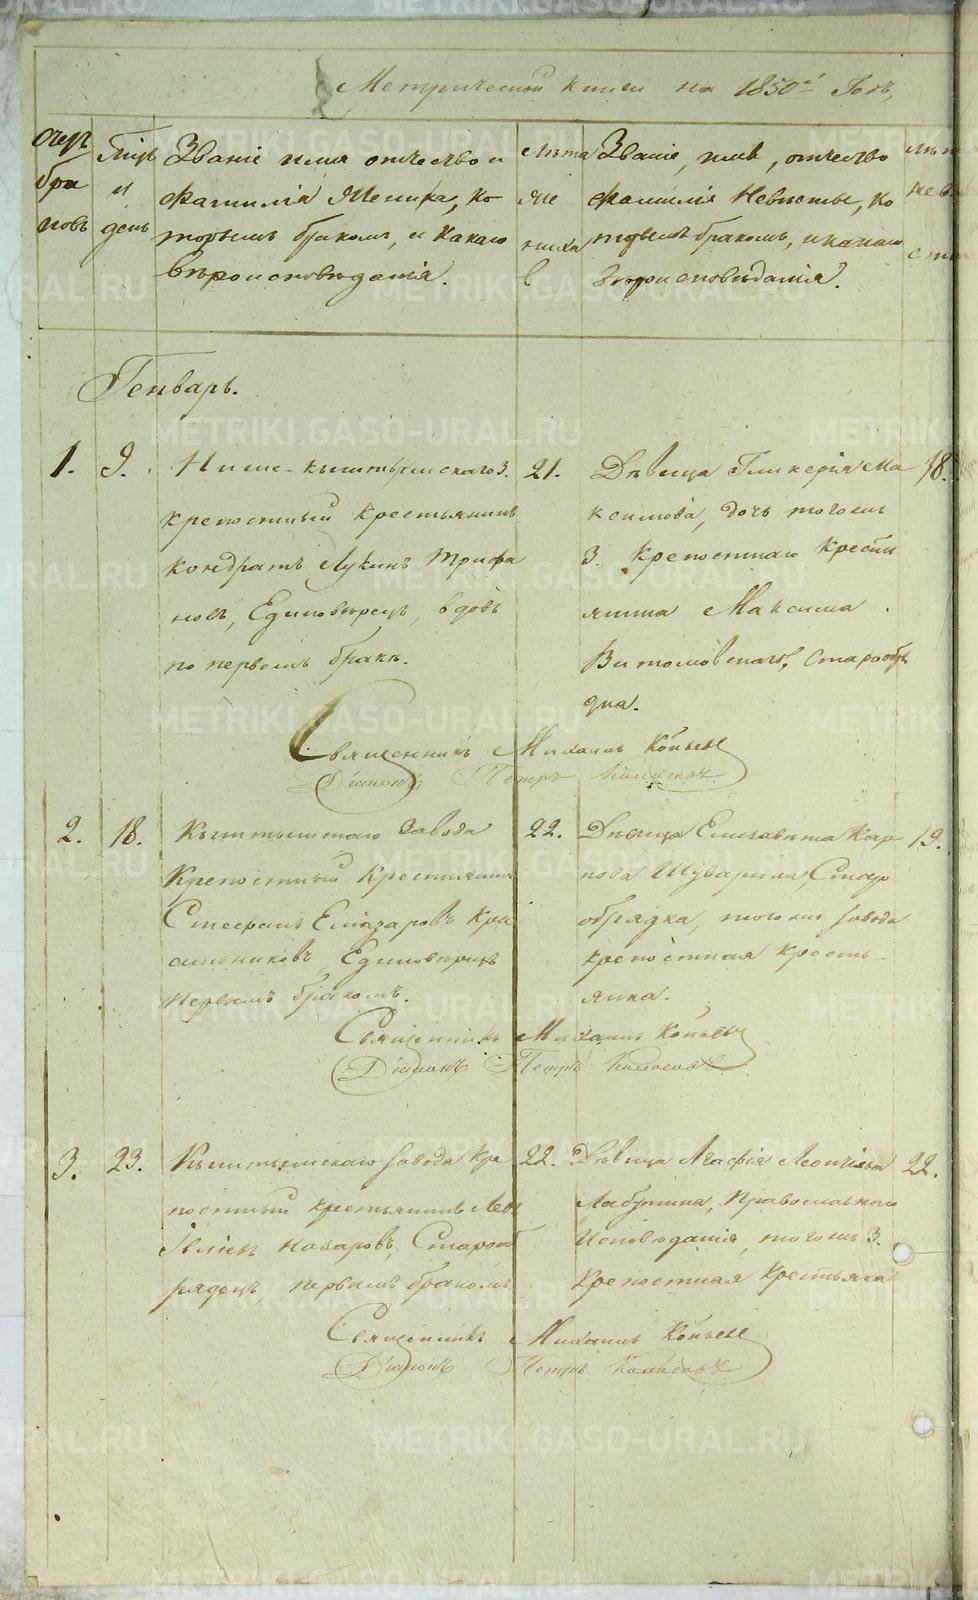 Метрической книги на 1850й Годъ,
Счетъ браковъ
Мѣсяцъ и день
Званіе имя отчество и
фамилія Жениха, ко
торымъ бракомъ, и какаго
вѣроисповѣданія.
Лѣта же ниха
Званіе, имя, отчество
фамилія Невѣсты, ко
торымъ бракомъ, и какаго
вѣроисповѣданія.
Генварь.
1.
9.
Ниже-кыштымскаго З.
крепостный крестьянинъ
Кондратъ Лукинъ Трифа
новъ, Единовѣрецъ, вдовъ
по первомъ бракѣ.
21.
Дѣвица Гликерія Ма
ксимова, дочь тогожъ
З. крепостнаго крестьи
янина Максима
Старообр
дка.
18.
Священникъ Михаилъ Копьевъ
Діаконъ Петръ
2.
18.
Кыштымскаго завода
Крепостный крестьянинъ
Стефанъ Елиазаровъ Кра
сильниковъ, Единовѣрецъ
первымъ бракомъ.
22.
Дѣвица Елисавета Кар
пова Шуварина, Стар
обрядка, тогожъ завода
крепостная кресть-
янка.
19.
Священникъ Михаилъ Копьевъ
Діаконъ Петръ
3.
23.
Кыштымскаго завода кре
постный крестьянинъ Левъ
Ильинъ Назаровъ, Староб
рядецъ, первымъ бракомъ
22.
Дѣвица Агафія Леонтіева
Лабутина, Православнаго
Исповѣданія, тогожъ З.
крепостная крестьяка
22.
Священникъ Михаилъ Копьевъ
Діаконъ Петръ
METRIKI.GASO-URAL.RU